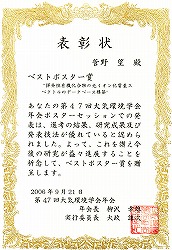 表彰状
菅野 望 殿
ベストポスター賞
"揮発性有機化合物の光イオン化質量ス
ペクトルのデータベース構築"
あなたの第47回大気環境学会
年会ポスターセッションでの発
表は、選考の結果、研究成果及び
発表技法が優れていると認めら
れました。よって、これを賞し今
後の研究が益々進展することを
祈念して、ベストポスター賞を贈
呈します。
2006年9月21日
第47回大気環境学会年会
年会長 柳沢 幸雄
実行委員長 大政 謙次